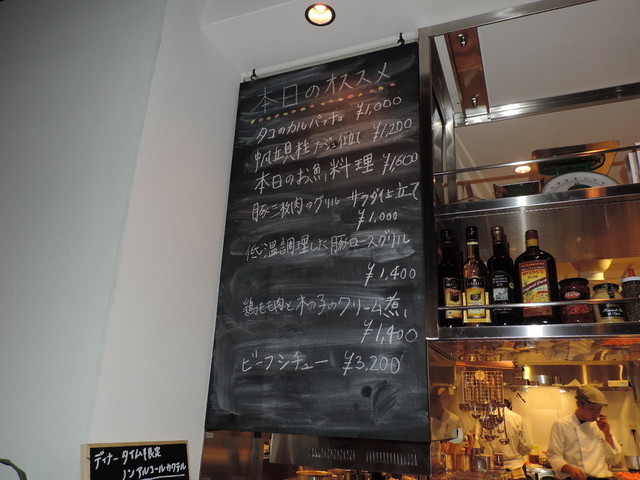 本日のオススメ
タコのカルパッチョ ¥1,000
帆立貝柱ナージュ仕立て ¥1,200
本日のお魚料理 ¥1,600
豚三枚肉のグリル サラダ仕立て
¥1,000
低温調理した豚ロースグリル
¥1,400
鶏もも肉と木の子のクリーム煮
¥1,400
ビーフシチュー ¥3,200
ディナータイム限定
ノンアルコールカクテル